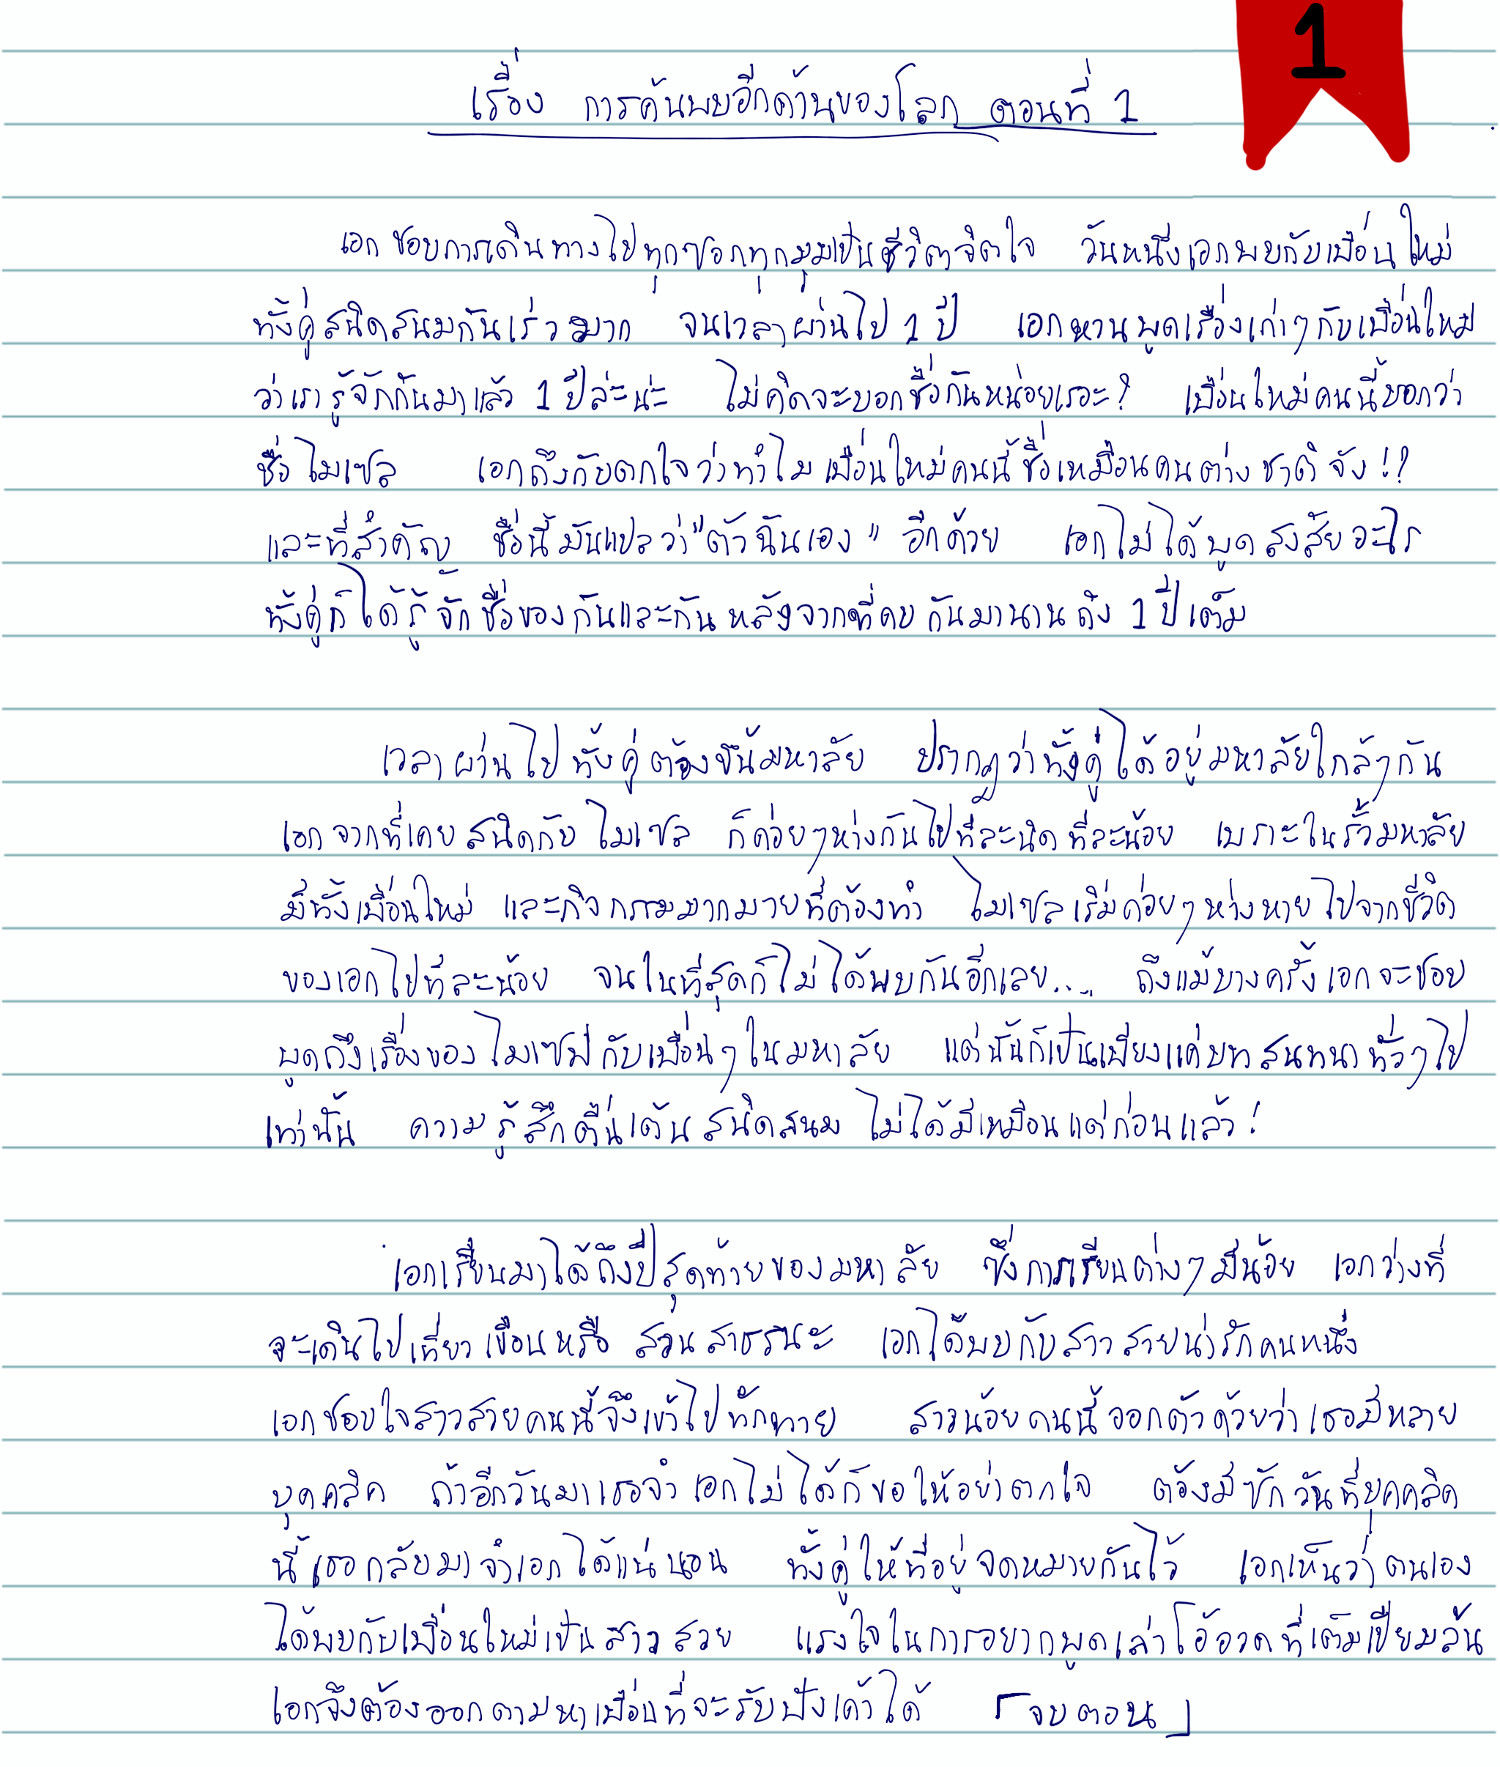 1
เรื่อง การค้นพบอีกด้านของโลก ตอนที่ 1
เอกชอบการเดินทางไปทุกซอกทุกมุมเป็นชีวิตจิตใจ วันหนึ่งเอกพบกับเพื่อนใหม่
ทั้งคู่สนิดสนมกันเร็วมาก จนเวลาผ่านไป 1 ปี เอกหวนพูดเรื่องเก่าๆกับเพื่อนใหม่
ว่าเรารู้จักกันมาแล้ว 1 ปีล่ะน่ะ ไม่คิดจะบอกชื่อกันหน่อยเรอะ? เพื่อนใหม่คนนี้บอกว่า
ชื่อไมเซล เอกถึงกับตกใจว่าทำไมเพื่อนใหม่คนนี้ชื่อเหมือนคนต่างชาติจัง!?
และที่สำคัญ ชื่อนี้มันแปลว่า "ตัวฉันเอง" อีกด้วย เอกไม่ได้พูดสงสัยอะไร
ทั้งคู่ก็ได้รู้จักชื่อของกันและกันหลังจากที่คบกันมานานถึง 1 ปีเต็ม
เวลาผ่านไปทั้งคู่ต้องขึ้นมหาลัย ปรากฏว่าทั้งคู่ได้อยู่มหาลัยใกล้ๆกัน
เอกจากที่เคยสนิดกับไมเซล ก็ค่อยๆห่างกันไปทีละนิดทีละน้อย เพราะในรั้วมหาลัย
มีทั้งเพื่อนใหม่ และกิจกรรมมากมายที่ต้องทำ ไมเซลเริ่มค่อยๆห่างหายไปจากชีวิต
ของเอกไปทีละน้อย จนในที่สุดก็ไม่ได้พบกันอีกเลย.... ถึงแม้บางครั้งเอกจะชอบ
พูดถึงเรื่องของไมเซลกับเพื่อนๆในมหาลัย แต่นั้นก็เป็นเพียงแค่บทสนทนาทั่วๆไป
เท่านั้น ความรู้สึกตื่นเต้นสนิดสนม ไม่ได้มีเหมือนแต่ก่อนแล้ว!
เอกเรียนมาได้ถึงปีสุดท้ายของมหาลัย ซึ่งการเรียนต่างๆมีน้อย เอกว่างที่
จะเดินไปเที่ยวเขื่อนหรือ สวนสาธรนะ เอกได้พบกับสาวสวยน่ารักคนหนึ่ง
เอกชอบใจสาวสวยคนนี้จึงเข้าไปทักทาย สาวน้อยคนนี้ออกตัวด้วยว่าเธอมีหลาย
บุคคลิค ถ้าอีกวันมาเธอจำเอกไม่ได้ก็ขอให้อย่าตกใจ ต้องมีซักวันที่บุคคลิค
นี้เธอกลับมาจำเอกได้แน่นอน ทั้งคู่ให้ที่อยู่จดหมายกันไว้ เอกเห็นว่าตนเอง
ได้พบกับเพื่อนใหม่เป็นสาวสวย แรงใจในการอยากพูดเล่าโอ้อวดที่เต็มเปี่ยมล้น
เอกจึงต้องออกตามหาเพื่อนที่จะรับฟังเค้าได้ 「จบตอน」